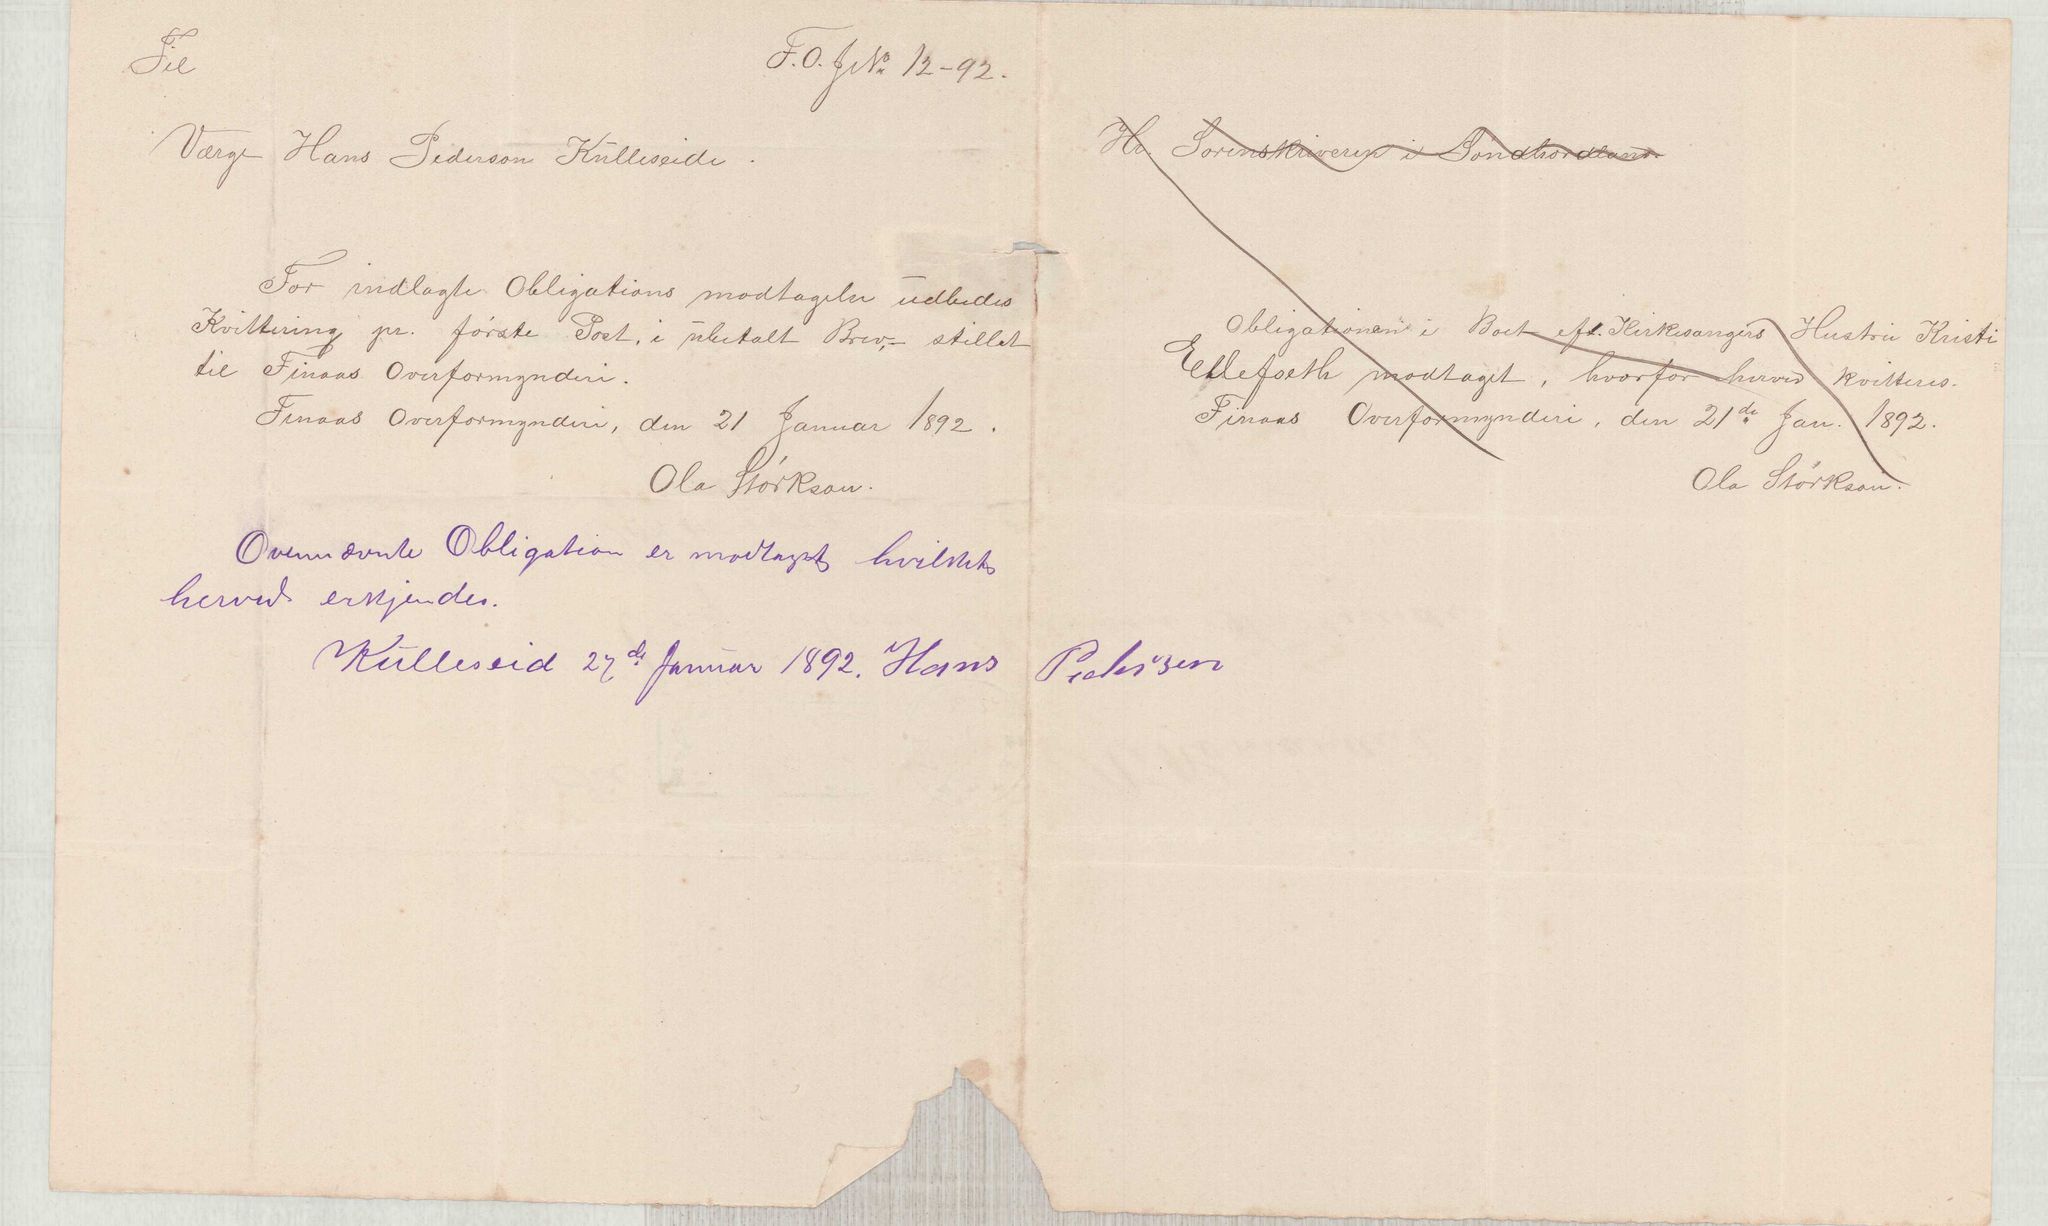 Til
F. O. J. No 12-92.
Værge Hans Pederson Kulleseide.
For indlagte Obligations modtagelse udbedes
Kvittering pr. første Post, i ubetalt Brev,- stillet
til Finaas Overformynderi.
Finaas Overformynderi, den 21 Januar 1892.
Ola Størkson.
Ovennævnte Obligation er modtaget hvilket
herved erkjendes.
Kulleseid 27de Januar 1892. Hans Pedersen
Hr. Sorenskriveren i Söndhordland.
Obligationen i Boet eft. Kirkesangers Hustru Kristi
Ellefseth modtaget, hvorfor herved kvitteres.
Finaas Overformynderi, den 21de Jan. 1892.
Ola Størkson.